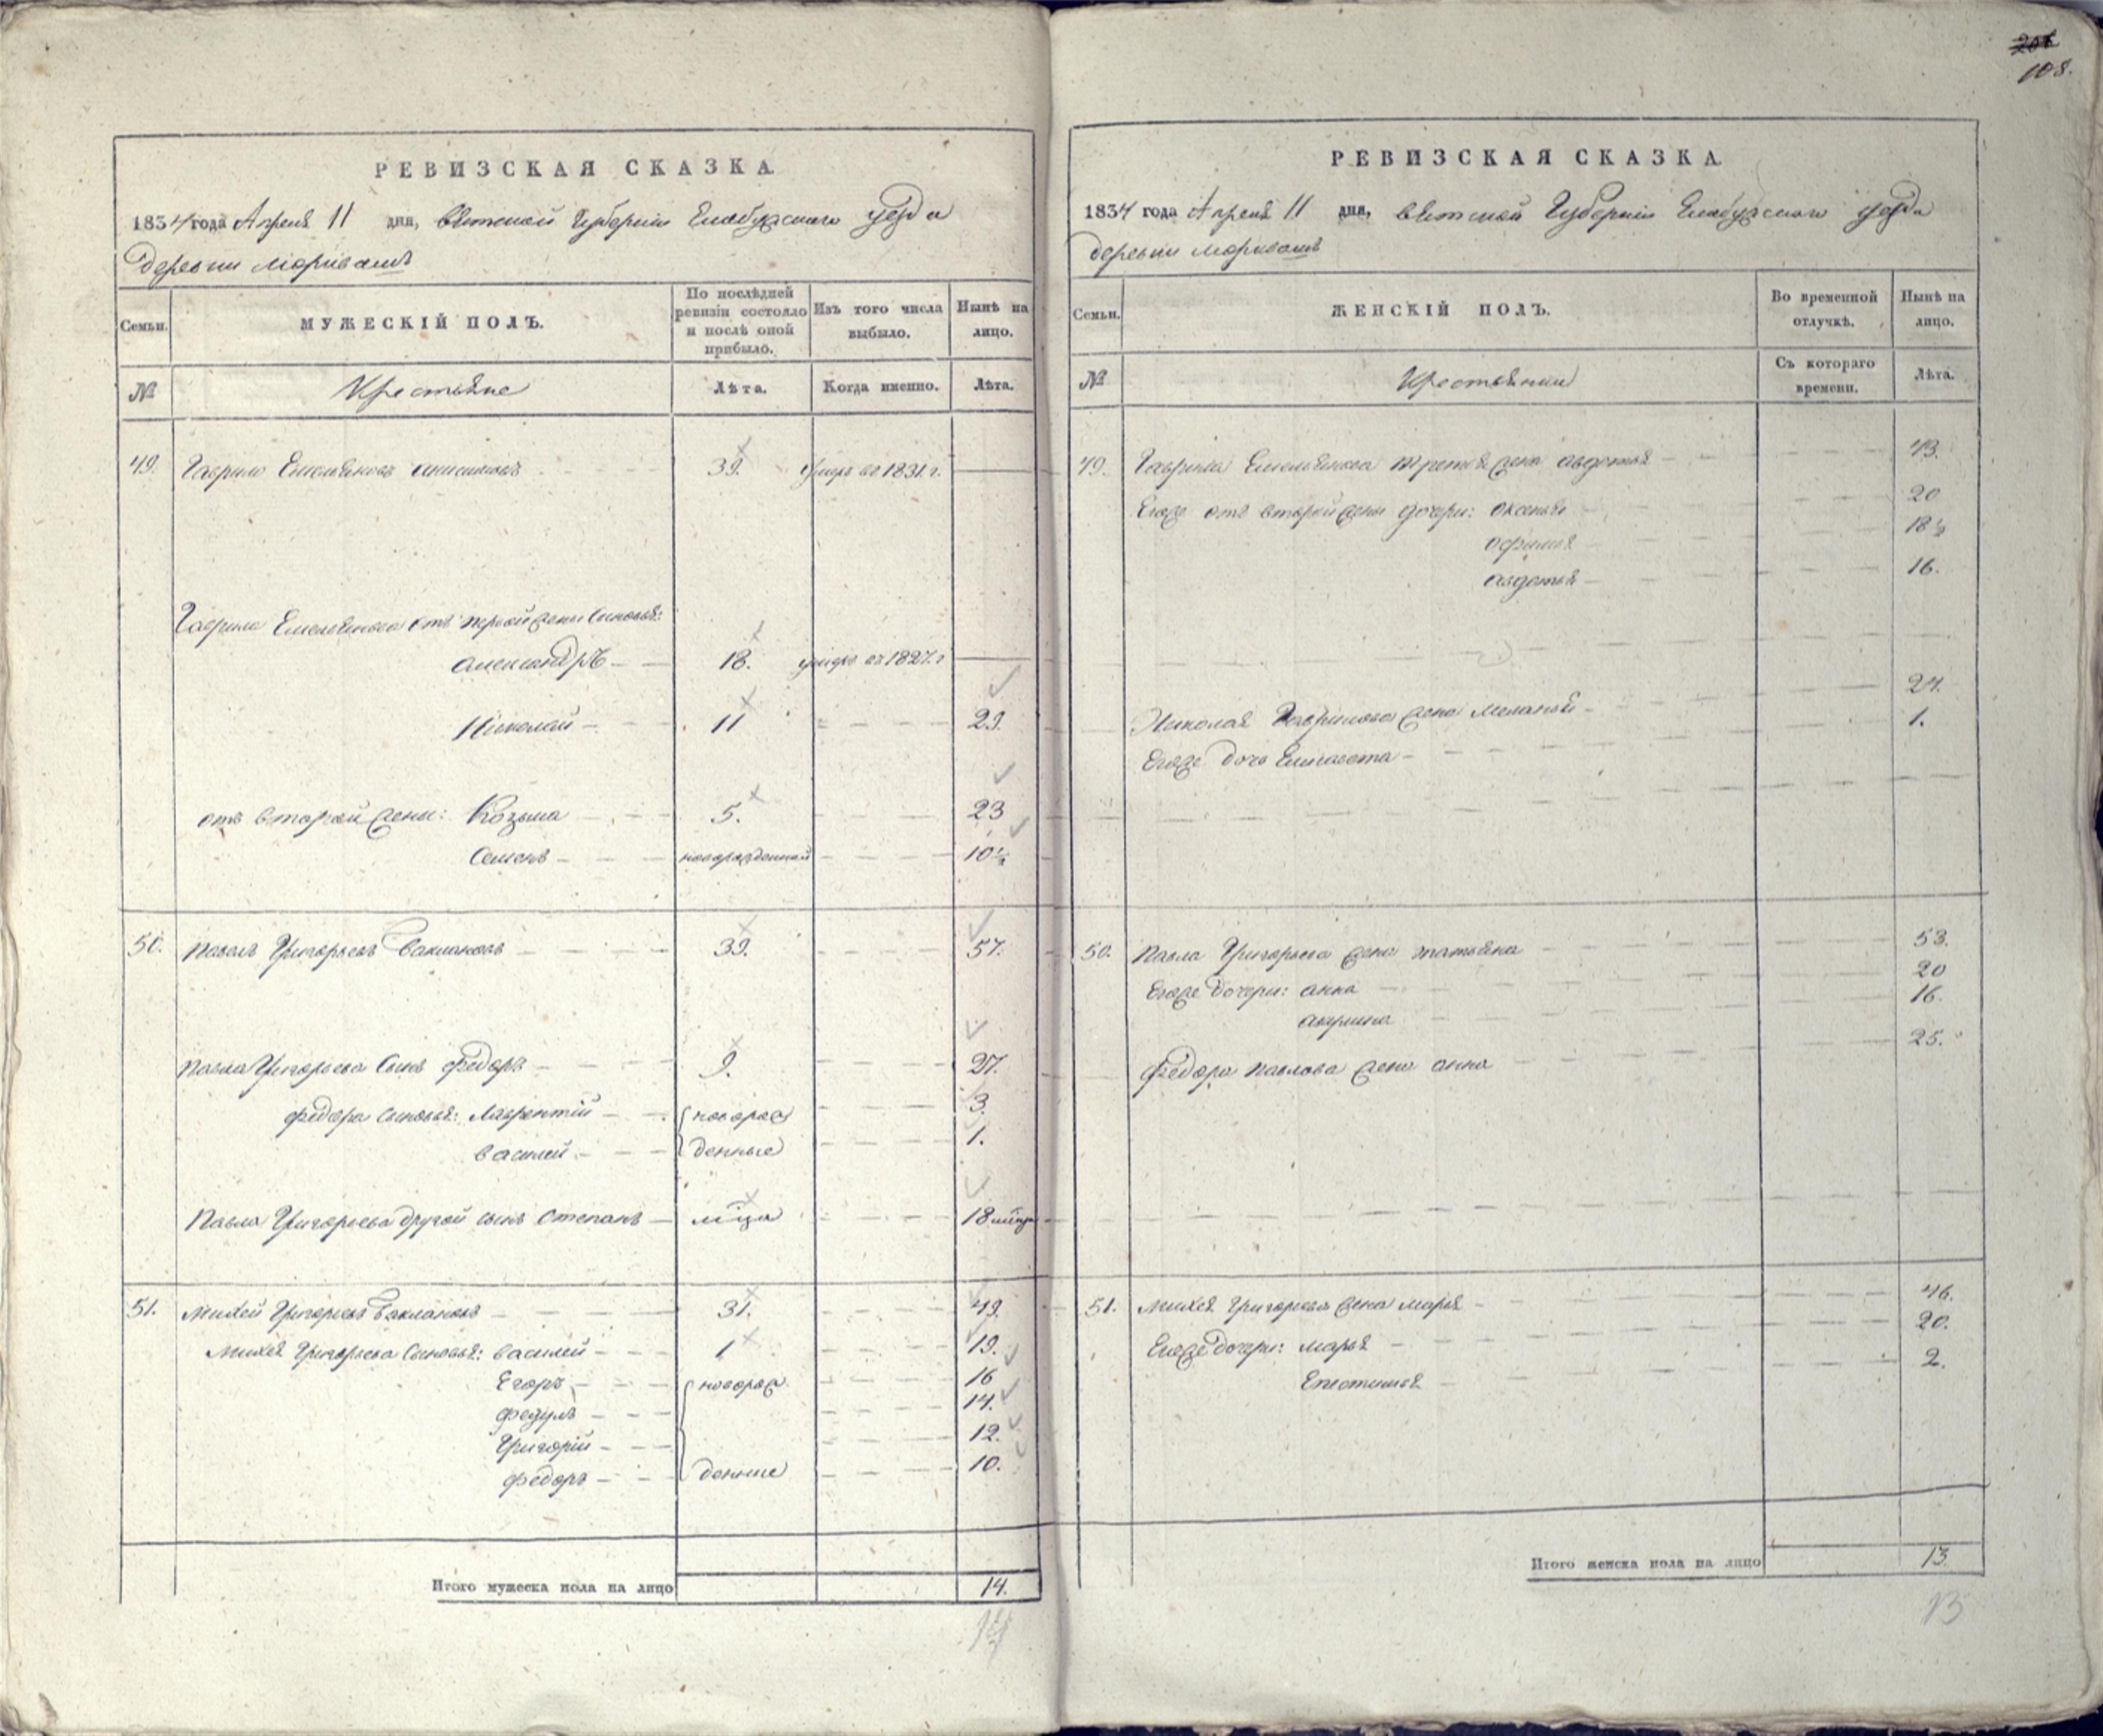 206
108.
РЕВИЗСКАЯ СКАЗКА.
1834 года Апреля 11 дня, вятской Губернии Елабужского уезда
деревни
Семьи.
МУЖЕСКІЙ ПОЛЪ.
По послѣдней ревизіи состояло и послѣ оной прибыло.
Изъ того числа выбыло.
Нынѣ на лицо.
№
Крестьяне
Лѣта.
Когда именно.
Лѣта.
49. Гаврило Емельяновъ анисимовъ 39. умеръ въ 1831. г.
Гаврила Емельянова отъ первой жены сыновья:
александръ 18. умеръ въ 1827. г
Николай 11 29.
отъ второй жены: Козьма 5. 23
Семенъ новорожденной 10½
50. Павелъ Григорьевъ Баклановъ 39. 57.
Павла Григорьева сынъ федоръ 9. 27.
федора сыновья: Лаврентій новорож 3.
василей денные 1.
Павла Григорьева другой сынъ степанъ 18
51. Михей Григорьевъ Баклановъ 31. 49.
Михея Григорьева сыновья: василей 1 19.
Егоръ новорож 16
федулъ 14.
Григорій 12.
федоръ денные 10.
Итого мужеска пола на лицо 14.
14
РЕВИЗСКАЯ СКАЗКА.
1834 года Апреля 11 дня, вятской Губернии Елабужского уезда
деревни
Семьи.
ЖЕНСКІЙ ПОЛЪ.
Во временной отлучкѣ.
Нынѣ на лицо.
№
Крестьянки
Съ котораго времени.
Лѣта.
49. Гаврила Емельянова третья жена авдотья 43.
Егоже отъ второй жены дочери: оксенья 20
офимья 18½
авдотья 16.
Николая Гаврилова жена меланья 24.
Егоже дочь Елисавета 1.
50. Павла Григорьева жена татьяна 53.
Егоже дочери: анна 20
акулина 16.
федора павлова жена анна 25.
51. михея Григорьева жена марья 46.
Егоже дочери: марья 20.
Епестимья 2.
Итого женска пола на лицо 13.
13